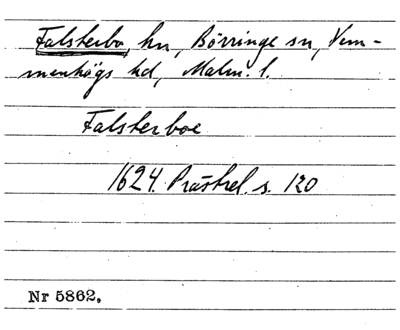 Falsterbo hn, Börringe sn, Vem-
menhögs hd, Malm. l.
Falsterboe
1624. Prästrel. s. 120
Nr 5862.